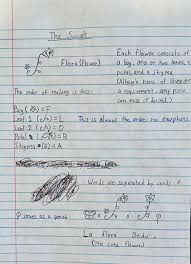 The Script
Each flower consists of
a bug, one or two leaves, a
petal, and a stigma
Flora (Flower)
(Altho none of these are
a requirement, any piece
can miss if needed.)
The order of reading is this:
Bug ( ) = F
Leaf 1 ( ) = L
Leaf 2 ( ) = O
Petal ( ) = R
Stigma ( ) = A
This is always the order, no exceptions.
Words are separated by seeds
La flora Bedu.
(The cute flower)